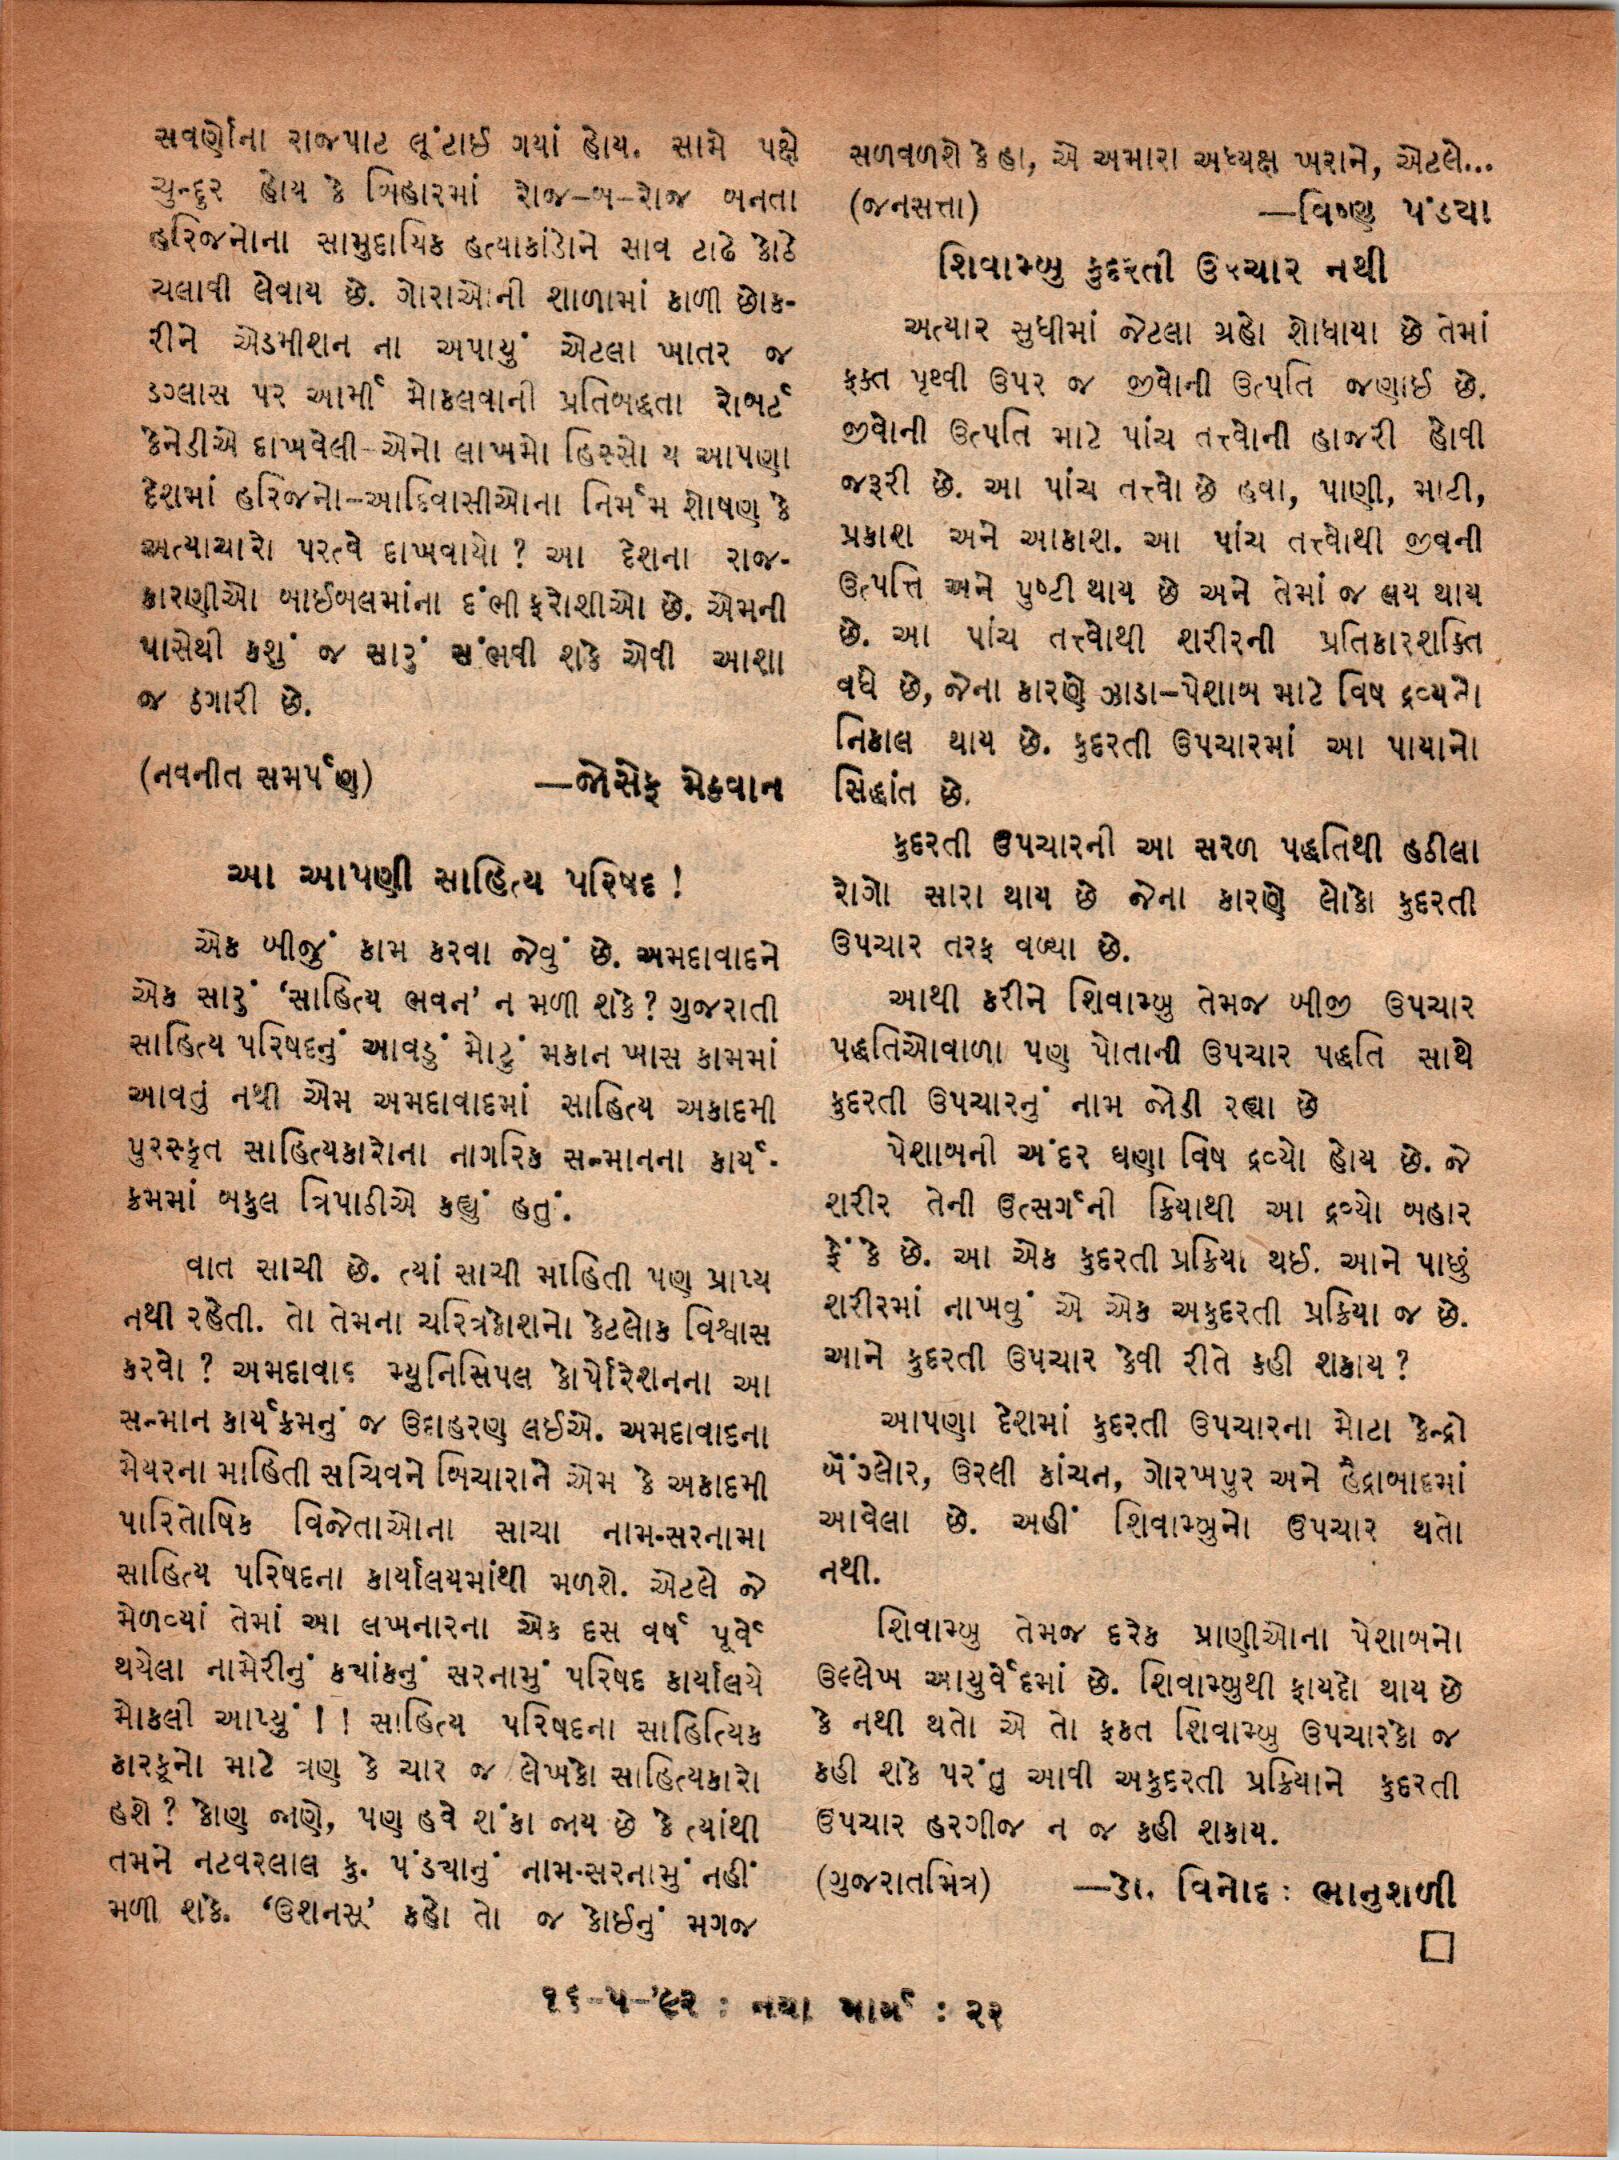 સવર્ણોના રાજપાટ લૂંટાઈ ગયાં હોય. સામે પક્ષે
ચુન્દુર હોય કે બિહારમાં રોજ-બ-રોજ બનતા
હરિજનોના સામુદાયિક હત્યાકાંડોને સાવ ટાઢે કોઠે
ચલાવી લેવાય છે. ગોરાઓની શાળામાં કાળી છોક-
રીને એડમીશન ના અપાયું એટલા ખાતર જ
ડગ્લાસ પર આર્મી મોકલવાની પ્રતિબદ્ધતા રોબર્ટ
કેનેડીએ દાખવેલી-એનો લાખમો હિસ્સો ય આપણા
દેશમાં હરિજનો-આદિવાસીઓના નિર્મમ શોષણ કે
અત્યાચારો પરત્વે દાખવાયો ? આ દેશના રાજ-
કારણીઓ બાઈબલમાંના દંભી ફરોશીઓ છે. એમની
પાસેથી કશું જ સારું સંભવી શકે એવી આશા
જ ઠગારી છે.
(નવનીત સમર્પણ) —જોસેફ મેકવાન
આ આપણી સાહિત્ય પરિષદ !
એક બીજું કામ કરવા જેવું છે. અમદાવાદને
એક સારું ‘સાહિત્ય ભવન’ ન મળી શકે ? ગુજરાતી
સાહિત્ય પરિષદનું આવડું મોટું મકાન ખાસ કામમાં
આવતું નથી એમ અમદાવાદમાં સાહિત્ય અકાદમી
પુરસ્કૃત સાહિત્યકારોના નાગરિક સન્માનના કાર્ય-
ક્રમમાં બકુલ ત્રિપાઠીએ કહ્યું હતું.
વાત સાચી છે. ત્યાં સાચી માહિતી પણ પ્રાપ્ય
નથી રહેતી. તો તેમના ચરિત્રકોશનો કેટલોક વિશ્વાસ
કરવો ? અમદાવાદ મ્યુનિસિપલ કોર્પોરેશનના આ
સન્માન કાર્યક્રમનું જ ઉદાહરણ લઈએ. અમદાવાદના
મેયરના માહિતી સચિવને બિચારાને એમ કે અકાદમી
પારિતોષિક વિજેતાઓના સાચા નામ-સરનામા
સાહિત્ય પરિષદના કાર્યાલયમાંથી મળશે. એટલે જે
મેળવ્યાં તેમાં આ લખનારના એક દસ વર્ષ પૂર્વે
થયેલા નામેરીનું ક્યાંકનું સરનામું પરિષદ કાર્યાલયે
મોકલી આપ્યું ! ! સાહિત્ય પરિષદના સાહિત્યિક
કારકૂનો માટે ત્રણ કે ચાર જ લેખકો સાહિત્યકારો
હશે ? કોણ જાણે, પણ હવે શંકા જાય છે કે ત્યાંથી
તમને નટવરલાલ કુ. પંડ્યાનું નામ-સરનામું નહીં
મળી શકે. ‘ઉશનસ્’ કહો તો જ કોઈનું મગજ
સળવળશે કે હા, એ અમારા અધ્યક્ષ ખરાને, એટલે...
(જનસત્તા) —વિષ્ણુ પંડયા
શિવામ્બુ કુદરતી ઉપચાર નથી
અત્યાર સુધીમાં જેટલા ગ્રહો શોધાયા છે તેમાં
ફક્ત પૃથ્વી ઉપર જ જીવોની ઉત્પતિ જણાઈ છે.
જીવોની ઉત્પતિ માટે પાંચ તત્ત્વોની હાજરી હોવી
જરૂરી છે. આ પાંચ તત્ત્વો છે હવા, પાણી, માટી,
પ્રકાશ અને આકાશ. આ પાંચ તત્ત્વોથી જીવની
ઉત્પત્તિ અને પુષ્ટી થાય છે અને તેમાં જ લય થાય
છે. આ પાંચ તત્ત્વોથી શરીરની પ્રતિકારશક્તિ
વધે છે, જેના કારણે ઝાડા-પેશાબ માટે વિષ દ્રવ્યનો
નિકાલ થાય છે. કુદરતી ઉપચારમાં આ પાયાનો
સિદ્ધાંત છે.
કુદરતી ઉપચારની આ સરળ પદ્ધતિથી હઠીલા
રોગો સારા થાય છે જેના કારણે લોકો કુદરતી
ઉપચાર તરફ વળ્યા છે.
આથી કરીને શિવામ્બુ તેમજ બીજી ઉપચાર
પદ્ધતિઓવાળા પણ પોતાની ઉપચાર પદ્ધતિ સાથે
કુદરતી ઉપચારનું નામ જોડી રહ્યા છે
પેશાબની અંદર ઘણા વિષ દ્રવ્યો હોય છે. જે
શરીર તેની ઉત્સર્ગની ક્રિયાથી આ દ્રવ્યો બહાર
ફેંકે છે. આ એક કુદરતી પ્રક્રિયા થઈ. આને પાછું
શરીરમાં નાખવું એ એક અકુદરતી પ્રક્રિયા જ છે.
આને કુદરતી ઉપચાર કેવી રીતે કહી શકાય ?
આપણા દેશમાં કુદરતી ઉપચારના મોટા કેન્દ્રો
બેંગ્લોર, ઉરલી કાંચન, ગોરખપુર અને હૈદ્રાબાદમાં
આવેલા છે. અહીં શિવામ્બુનો ઉપચાર થતો
નથી.
શિવામ્બુ તેમજ દરેક પ્રાણીઓના પેશાબનો
ઉલ્લેખ આયુર્વેદમાં છે. શિવામ્બુથી ફાયદો થાય છે
કે નથી થતો એ તો ફકત શિવામ્બુ ઉપચારકો જ
કહી શકે પરંતુ આવી અકુદરતી પ્રક્રિયાને કુદરતી
ઉપચાર હરગીજ ન જ કહી શકાય.
(ગુજરાતમિત્ર) —ડો. વિનોદ : ભાનુશળી
૧૬-૫-’૯૨ : નયા માર્ગ : ૨૨